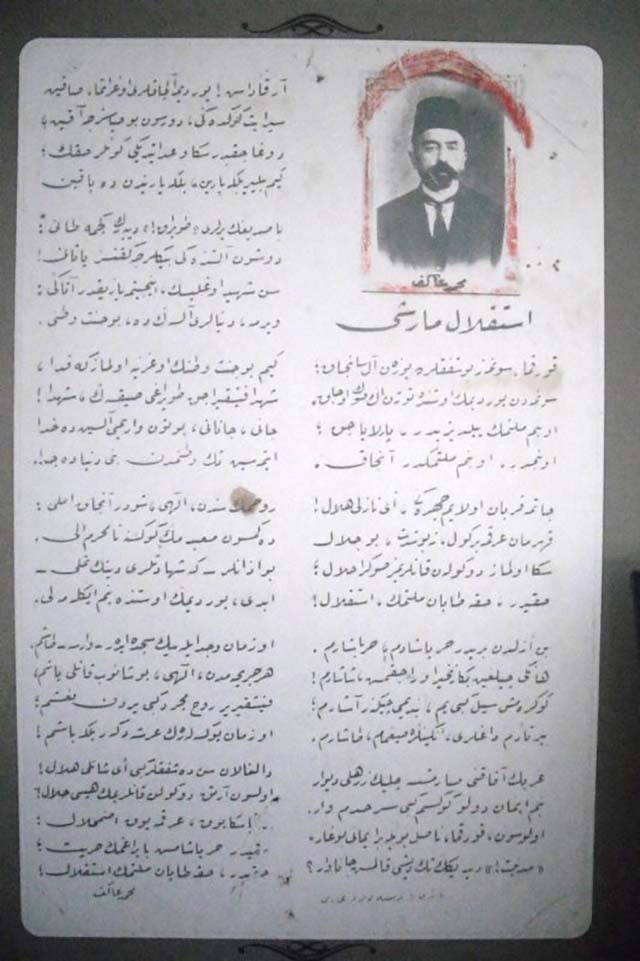 محمد عاكف
استقلال مارشى
قورقما، سونمز بو شفقلرده يوزن آل سانجاق؛
سونمدن يورديمك اوستنده توتن اك صوك اوجاق.
او بنم ملتمك ييلديزيدر، پارلاياجق؛
او بنمدر، او بنم ملتمكدر آنجاق.
چاتما، قربان اولايم، چهره‌كى، اى نازلى هلال!
قهرمان عرقمه بر كول، نه بو شدت، بو جلال
سكا اولماز دوكولن قانلريمز صوكرا حلال؛
حقيدر، حقه طاپان ملتمك، استقلال!
بن ازلدن بريدر حر ياشادم، حر ياشارم.
هانكى چيلغين بكا زنجير اوراجقمش، شاشارم!
كوكره‌مش سيل كبى‌يم، بنديمى چيكنر، آشارم؛
ييرتارم داغلرى، انكينلره صيغمام، طاشارم.
غربك آفاقنى صارمشسه چليك زرهلى ديوار
بنم ايمان دولو كوكسم كبى سرحدم وار.
اولوسون، قورقما، ناصل بويله بر ايمانى بوغار،
«مدنيت!» ديديكك تك ديشى قالمش جاناوار؟
آرقاداش! يورديمه آلچاقلرى اوغراتما، صاقين
سپر ايت كوكده‌كى، دورسون بو حياسزجه آقين؛
دوغاجقدر سكا وعد ايتديكى كونلر حقك؛
كيم بيلير، بلكه يارين، بلكه ياريندن ده ياقين
باصديغك يرلرى «طوپراق!» ديه‌رك كچمه، طانى:
دوشون آلتنده‌كى بيكلرجه كفنسز ياتانى!
سن شهيد اوغليسك، اينجيتمه، يازيقدر، آتاكى؛
ويرمه، دنيالرى آلسه‌ك ده، بو جنت وطنى.
كيم بو جنت وطنك اوغرينه اولماز كه فدا،
شهدا فيشقيراجق طوپراغى صيقسه‌ك، شهدا!
جانى، جانانى، بوتون واريمى آلسين ده خدا
ايتمه‌سين تك وطنمدن بنى دنياده جدا.
روحمك سندن، الهى، شودر آنجاق املى:
دكمسون معبديمك كوكسنه نامحرم الى.
بو اذانلر ـ كه شهادتلرى دينك تملى ـ
ابدى، يورديمك اوستنده بنم ايكله‌ملى.
او زمان وجد ايله بيك سجده ايدر ـ وارسه ـ طاشم.
هر جريحه‌مدن، الهى، بوشانوب قانلى ياشم،
فيشقيرير روح مجرد كبى يردن نعشم؛
او زمان يوكسله‌رك عرشه دكر بلكه باشم!
دالغالان سن ده شفقلر كبى اى شانلى هلال!
اولسون آرتق دوكولن قانلريمك هپسى حلال!
ابديا سكا يوق، عرقمه يوق اضمحلال:
حقيدر، حر ياشامش بايراغمك حريت؛
حقيدر، حقه طاپان ملتمك استقلال!
محمد عاكف